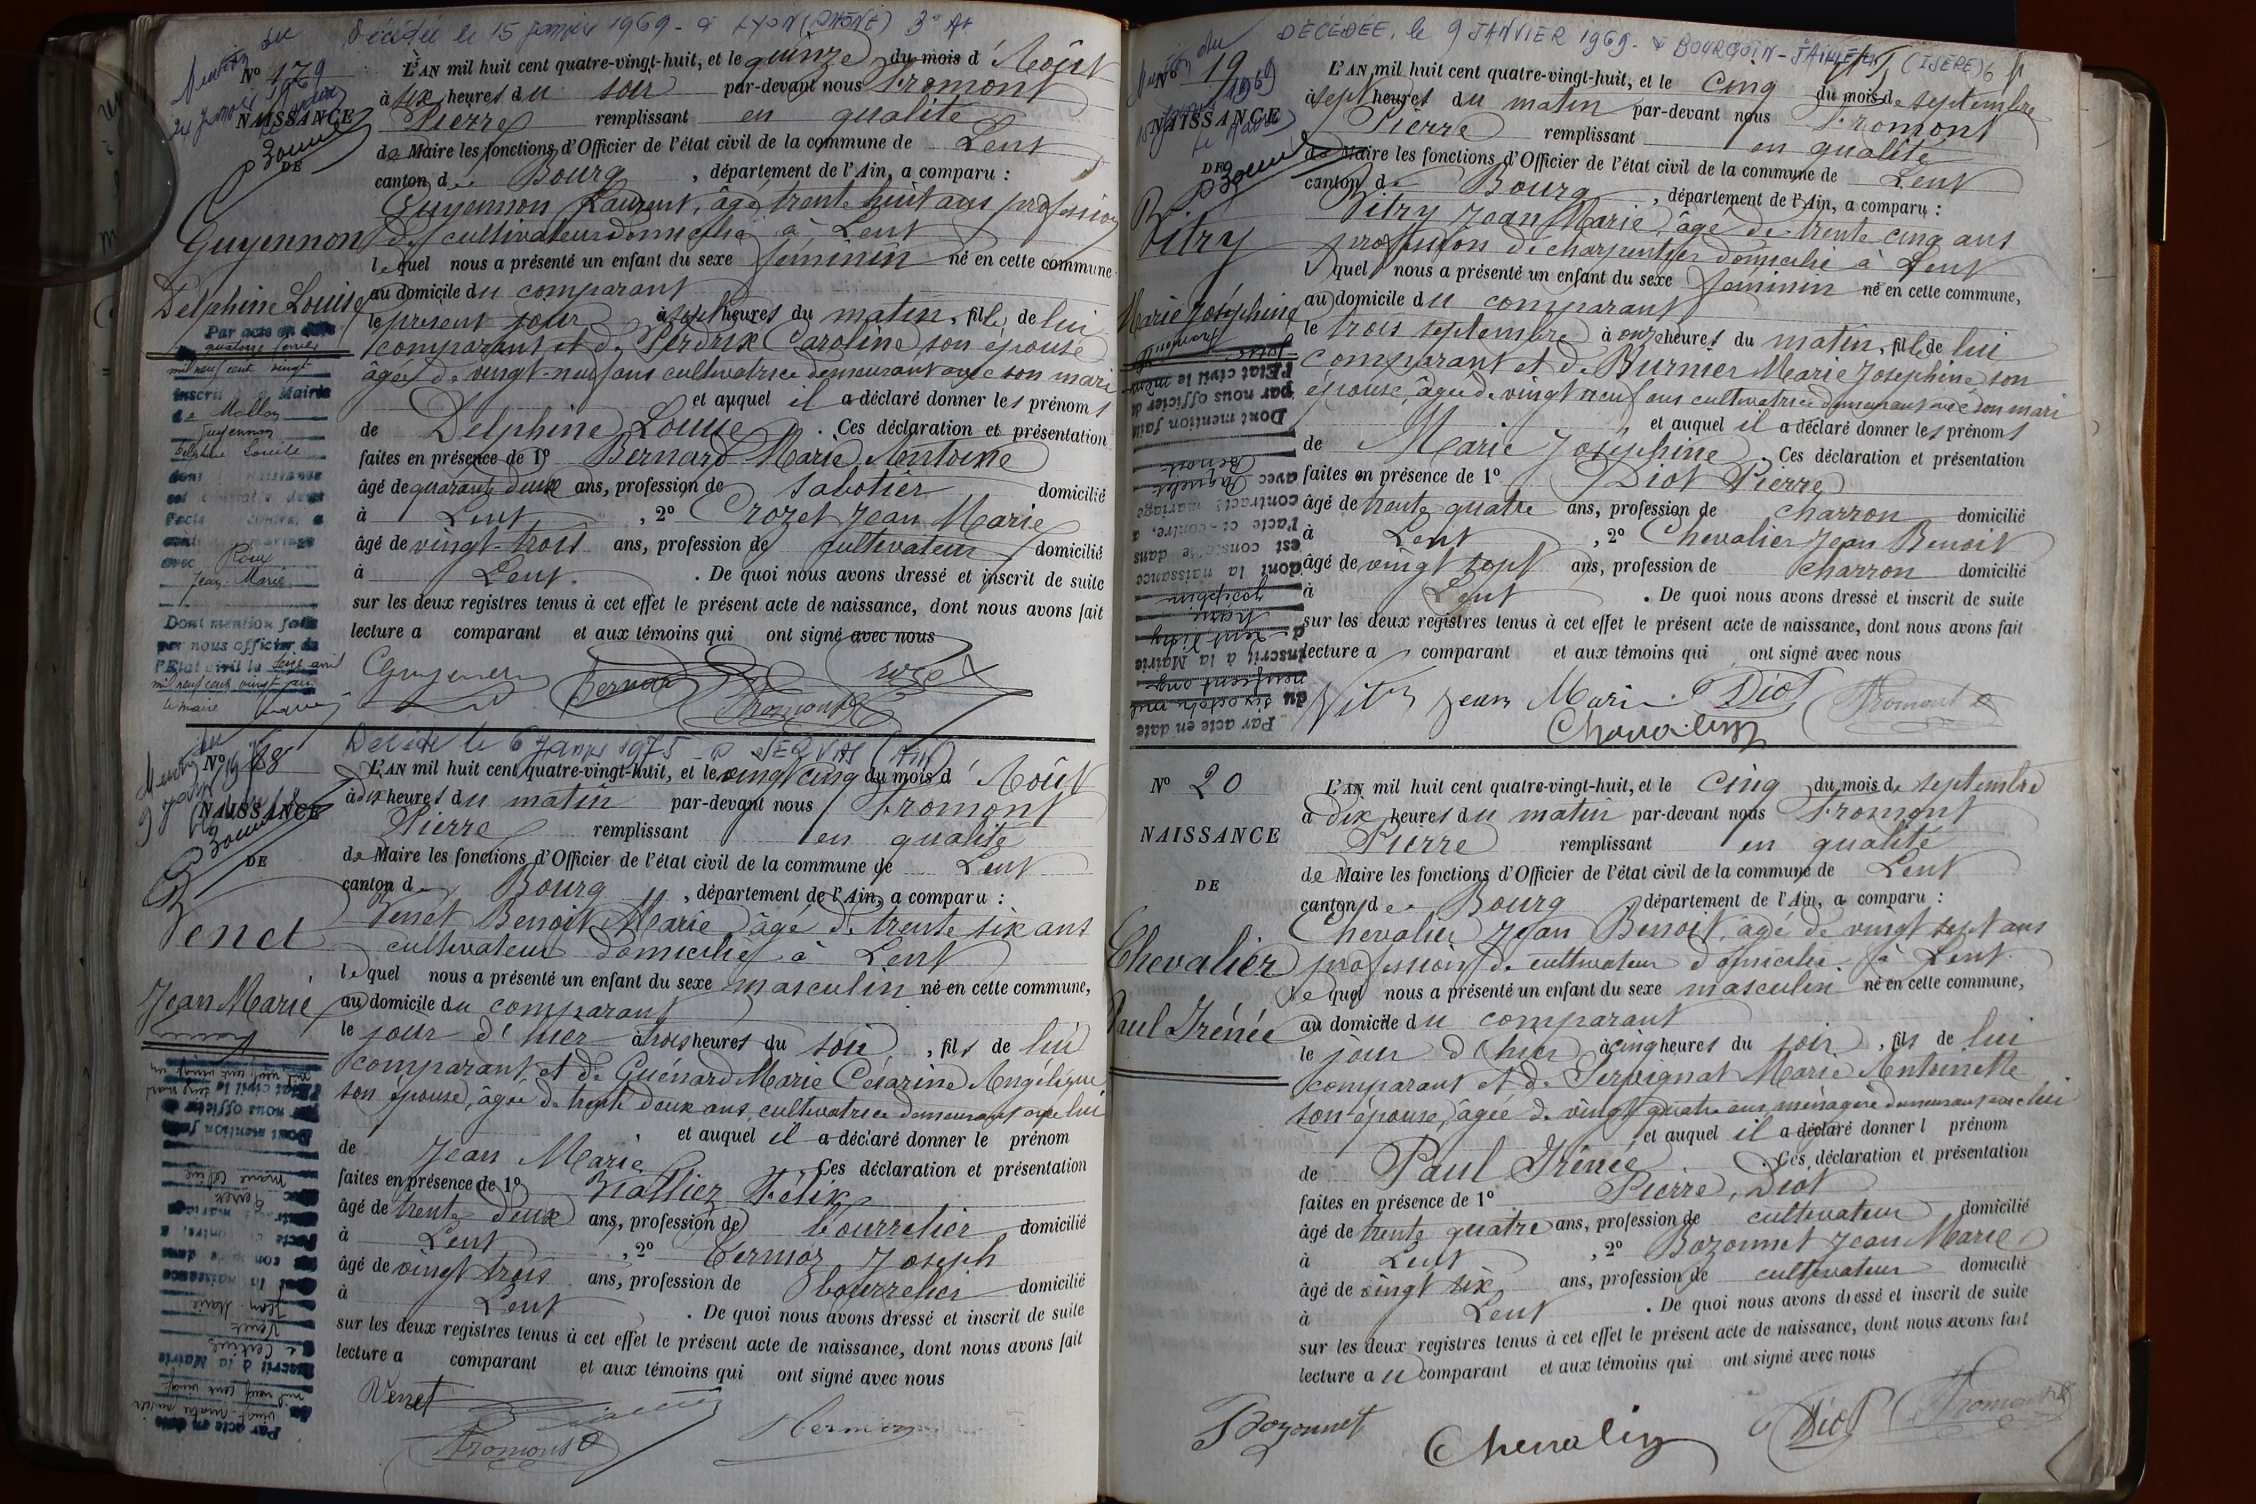 Décédée le 15 janvier 1969 - à LYON (RHÔNE) 3e Ar
24 janvier
NAISSANCE
DE
Guyennon
Delphine Louise
L'AN mil huit cent quatre-vingt-huit, et le quinze du mois d'Août
à six heures du soir par-devant nous Fromont
Pierre remplissant en qualité
de Maire les fonctions d'Officier de l'état civil de la commune de Lent
canton de Bourg, département de l'Ain, a comparu :
Guyennon Laurent, âgé trente huit ans profession
de cultivateur domicilié à Lent
lequel nous a présenté un enfant du sexe féminin né en cette commune
au domicile du comparant
le présent jour à sept heures du matin, fille de lui
comparant et de Perdrix Caroline son épouse
âgée de vingt-neuf ans cultivatrice demeurant avec son mari
et auquel il a déclaré donner les prénoms
de Delphine Louise. Ces déclaration et présentation
faites en présence de 1° Bernard Marie Antoine
âgé de quarante deux ans, profession de sabotier domicilié
à Lent, 2° Crozet Jean Marie
âgé de vingt-trois ans, profession de cultivateur domicilié
à Lent. De quoi nous avons dressé et inscrit de suite
sur les deux registres tenus à cet effet le présent acte de naissance, dont nous avons fait
lecture a comparant et aux témoins qui ont signé avec nous
Par acte en date
quatorze
mil neuf cent vingt
inscrit Mairie
de
Guyennon
Delphine Louise
dont la naissance
est constatée dans
l'acte contre, a
mariage
avec Roux
Jean-Marie
Dont mention faite
par nous officier de
l'Etat civil le seize avril
mil neuf cent vingt un
le maire
Bernard
Fromont
Décédé le 6 janvier 1975 - à SERVAS (AIN)
N° 18
NAISSANCE
DE
Venet
Jean Marie
L'AN mil huit cent quatre-vingt-huit, et le vingt cinq du mois d'Août
à dix heures du matin par-devant nous Fromont
Pierre remplissant en qualité
de Maire les fonctions d'Officier de l'état civil de la commune de Lent
canton de Bourg, département de l'Ain, a comparu :
Venet Benoit Marie âgé de trente six ans
cultivateur domicilié à Lent
lequel nous a présenté un enfant du sexe masculin né en cette commune,
au domicile du comparant
le jour d'hier à trois heures du soir, fils de lui
comparant et de Guénard Marie Césarine Angélique
son épouse, âgée de trente deux ans, cultivatrice demeurant avec lui
et auquel il a déclaré donner le prénom
de Jean Marie. Ces déclaration et présentation
faites en présence de 1° Félix
âgé de trente deux ans, profession de bourrelier domicilié
à Lent, 2° Joseph
âgé de vingt trois ans, profession de bourrelier domicilié
à Lent. De quoi nous avons dressé et inscrit de suite
sur les deux registres tenus à cet effet le présent acte de naissance, dont nous avons fait
lecture a comparant et aux témoins qui ont signé avec nous
Par acte en date
inscrit à la Mairie
Venet
Jean Marie
dont la naissance
est constatée dans
l'acte ci-contre, a
Dont mention faite
par nous officier de
l'Etat civil le
mil neuf cent vingt un
Venet
Fromont
DÉCÉDÉE, le 9 JANVIER 1969 - à BOURGOIN-JALLIEU (ISÈRE)
N° 19
1969
NAISSANCE
DE
Vitry
Marie Joséphine
L'AN mil huit cent quatre-vingt-huit, et le cinq du mois de septembre
à sept heures du matin par-devant nous Fromont
Pierre remplissant en qualité
de Maire les fonctions d'Officier de l'état civil de la commune de Lent
canton de Bourg, département de l'Ain, a comparu :
Vitry Jean Marie, âgé de trente cinq ans
profession de charpentier domicilié à Lent
lequel nous a présenté un enfant du sexe féminin né en cette commune,
au domicile du comparant
le trois septembre à onze heures du matin, fille de lui
comparant et de Burnier Marie Joséphine son
épouse, âgée de vingt neuf ans cultivatrice demeurant avec son mari
et auquel il a déclaré donner les prénoms
de Marie Joséphine. Ces déclaration et présentation
faites en présence de 1° Diot Pierre
âgé de trente quatre ans, profession de charron domicilié
à Lent, 2° Chevalier Jean Benoit
âgé de vingt sept ans, profession de charron domicilié
à Lent. De quoi nous avons dressé et inscrit de suite
sur les deux registres tenus à cet effet le présent acte de naissance, dont nous avons fait
lecture a comparant et aux témoins qui ont signé avec nous
Par acte en date
inscrit à la Mairie
Joséphine
dont la naissance
est constatée dans
l'acte ci-contre, a
contracté mariage
avec
Benoit
Dont mention faite
par nous officier de
l'Etat civil le
Vitry Jean Marie Diot Fromont
Chevalier
N° 20
NAISSANCE
DE
Chevalier
Paul Irénée
L'AN mil huit cent quatre-vingt-huit, et le cinq du mois de septembre
à dix heures du matin par-devant nous Fromont
Pierre remplissant en qualité
de Maire les fonctions d'Officier de l'état civil de la commune de Lent
canton de Bourg département de l'Ain, a comparu :
Chevalier Jean Benoit, âgé de vingt sept ans
profession de cultivateur domicilié à Lent
lequel nous a présenté un enfant du sexe masculin né en cette commune,
au domicile du comparant
le jour d'hier à cinq heures du soir, fils de lui
comparant et de Servignat Marie Antoinette
son épouse, âgée de vingt quatre ans ménagère demeurant avec lui
et auquel il a déclaré donner l prénom
de Paul Irénée. Ces déclaration et présentation
faites en présence de 1° Pierre Diot
âgé de trente quatre ans, profession de cultivateur domicilié
à Lent, 2° Bozonnet Jean Marie
âgé de vingt six ans, profession de cultivateur domicilié
à Lent. De quoi nous avons dressé et inscrit de suite
sur les deux registres tenus à cet effet le présent acte de naissance, dont nous avons fait
lecture au comparant et aux témoins qui ont signé avec nous
Bozonnet Chevalier Diot Fromont